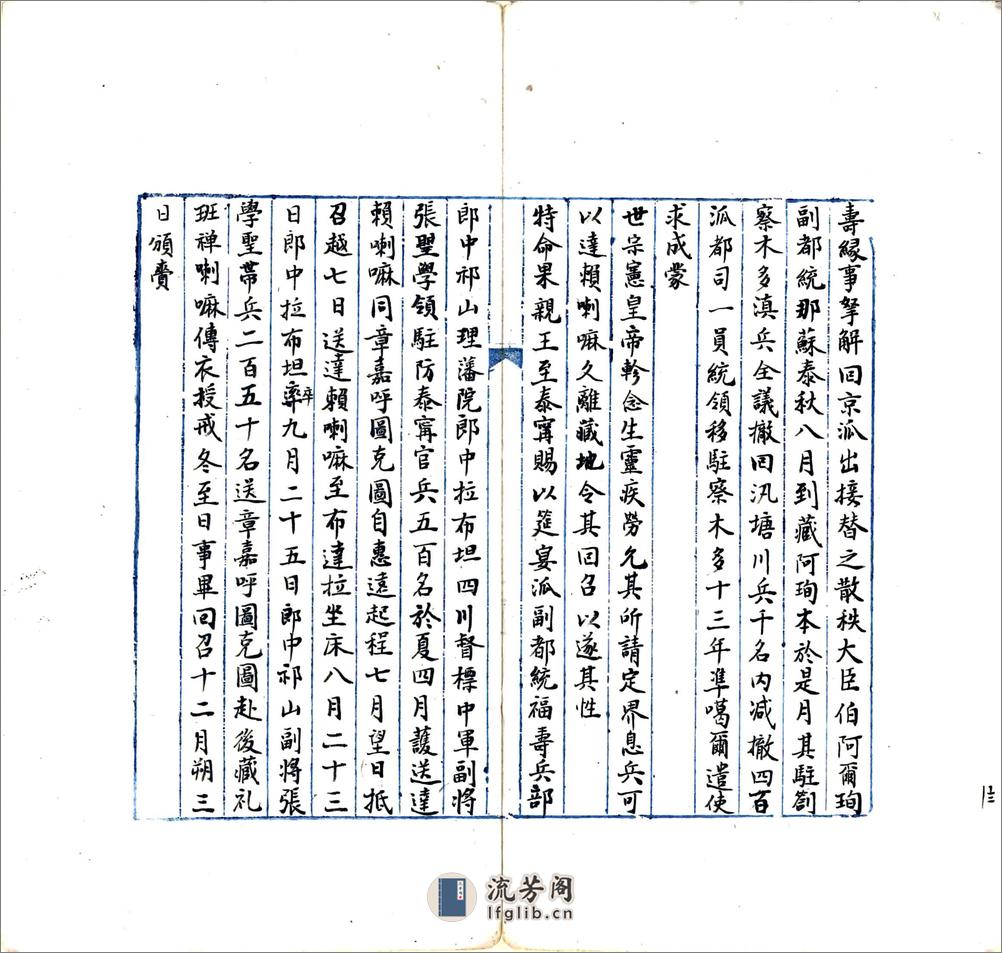 壽緣事拏解回京派出接替之散秩大臣伯阿爾珣
副都統那蘇泰秋八月到藏阿珣本於是月其駐劄
察木多滇兵全議撤回汛塘川兵千名内減撤四百
派都司一員統領移駐察木多十三年準噶爾遣使
求成蒙
世宗憲皇帝軫念生靈疾勞允其所請定界息兵可
以達賴喇嘛久離藏地令其回召以遂其性
特命果親王至泰寧賜以筵宴派副都統福壽兵部
郎中祁山理藩院郎中拉布坦四川督標中軍副將
張聖學領駐防泰寧官兵五百名於夏四月護送達
賴喇嘛同章嘉呼圖克圖自惠遠起程七月望日抵
召越七日送達賴喇嘛至布達拉坐床八月二十三
日郎中拉布坦率卒九月二十五日郎中祁山副將張
學聖帶兵二百五十名送章嘉呼圖克圖赴後藏礼
班禅喇嘛傳衣授戒冬至日事畢回召十二月朔三
日頒賚
流芳阁
lfglib.cn